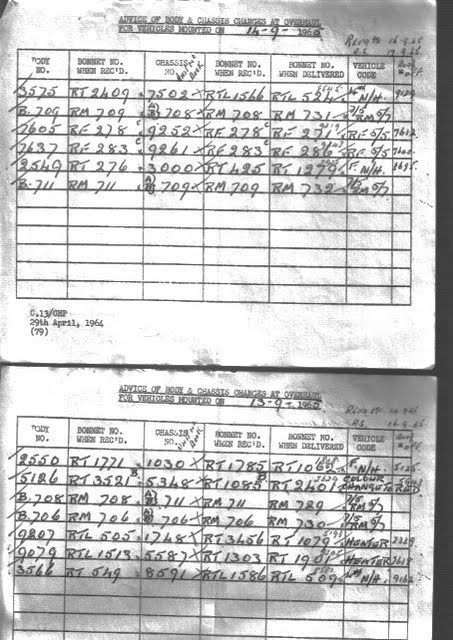 ADVICE OF BODY & CHASSIS CHANGES AT OVERHAUL
FOR VEHICLES MOUNTED ON 14-9-1965
BODY NO. BONNET NO. WHEN REC'D. CHASSIS NO. BONNET NO. WHEN REC'D. BONNET NO. WHEN DELIVERED VEHICLE CODE
3575 RT 2409 7502 RTL 1566 RTL 524 N/H.
B.709 RM 709 708 RM 708 RM 731 7/5 RM 5/7
7605 RF 278 9252 RF 278 RF 271 RF 5/5 7612
7637 RF 283 9261 RF 283 RF 286 RF 5/5
2549 RT 276 3000 RT 425 RT 1279 F. N/H.
B.711 RM 711 709 RM 709 RM 732 RM 5/7
C.13/OHP
29th April, 1964
(79)
ADVICE OF BODY & CHASSIS CHANGES AT OVERHAUL
FOR VEHICLES MOUNTED ON 13-9-1965
BODY NO. BONNET NO. WHEN REC'D. CHASSIS NO. BONNET NO. WHEN REC'D. BONNET NO. WHEN DELIVERED VEHICLE CODE
2550 RT 1771 1030 RT 1785 RT 106 F. N/H. 5125
5126 RT 3521 B 5348 RT 1085 B RT 2401 COLOUR CHANGE TO RED
B.708 RM 708 711 RM 711 RM 729 7/5 RM 5/7
B.706 RM 706 706 RM 706 RM 730 7/5 RM 5/7
9207 RTL 505 1748 RT 3456 RT 1079 HEATER
9079 RTL 1513 5587 RT 1303 RT 1907 HEATER
3566 RT 549 8591 RTL 1586 RTL 509 N/H. 9162